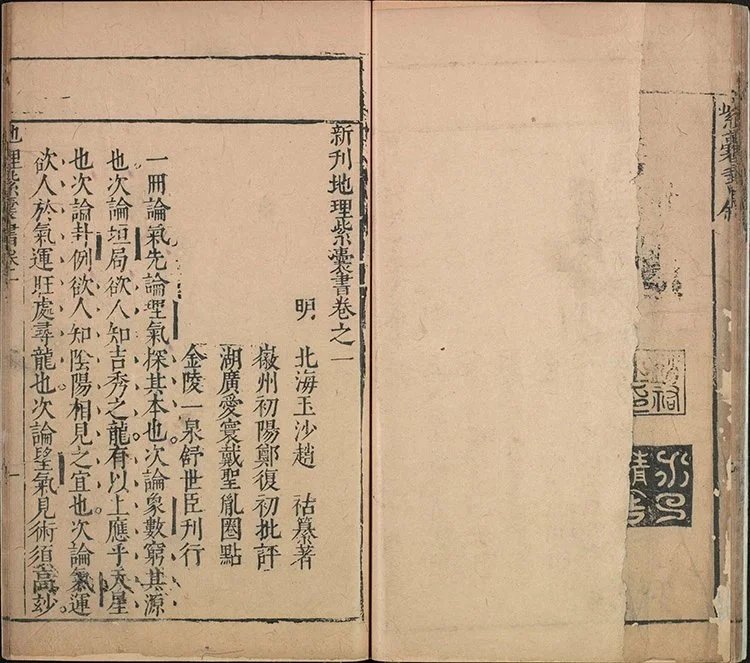 新刊地理紫囊書卷之一
明 北海玉沙趙 祜纂著
徽州初陽鄭復初批評
湖廣愛寰戴聖胤圈點
金陵一泉舒世臣刊行
一冊論氣先論理氣探其本也次論象數窮其源
也次論垣局欲人知吉秀之龍有以上應乎天星
也次論卦例欲人知陰陽相見之宜也次論氣運
欲人於氣運旺處尋龍也次論望氣見術須高玅
地理紫囊書卷一
一
紫囊書